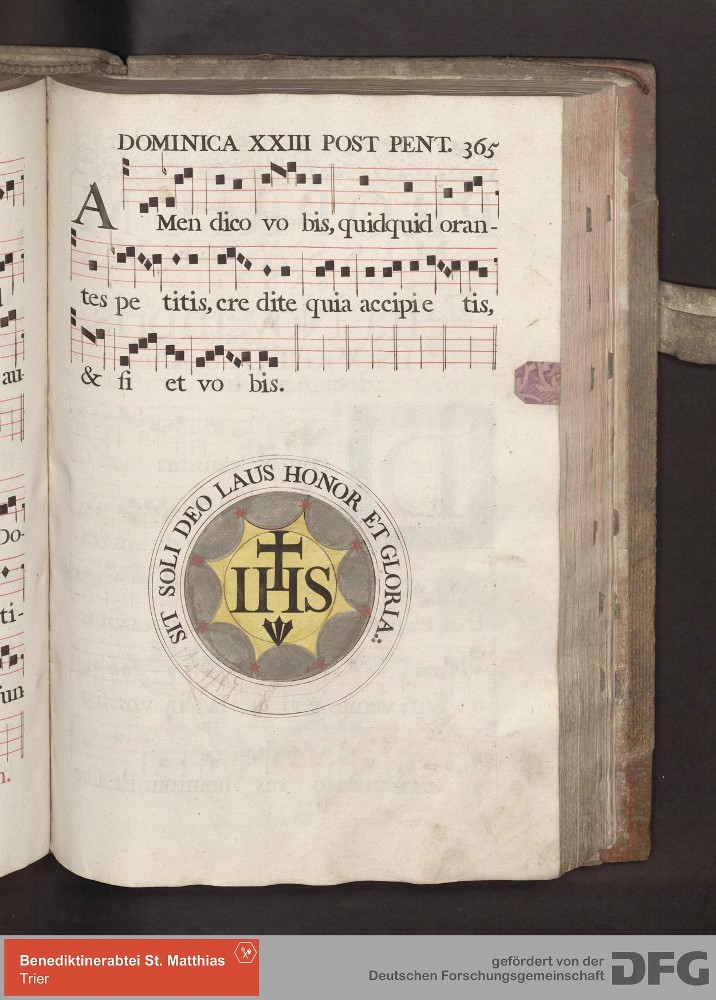 DOMINICA XXIII POST PENT. 365
AMen dico vo bis, quidquid oran-
tes pe titis, cre dite quia accipi e tis,
& fi et vo bis.
SIT SOLI DEO LAUS HONOR ET GLORIA.
IHS
au-
Do-
ti-
fun
Benediktinerabtei St. Matthias
Trier
gefördert von der
Deutschen Forschungsgemeinschaft
DFG